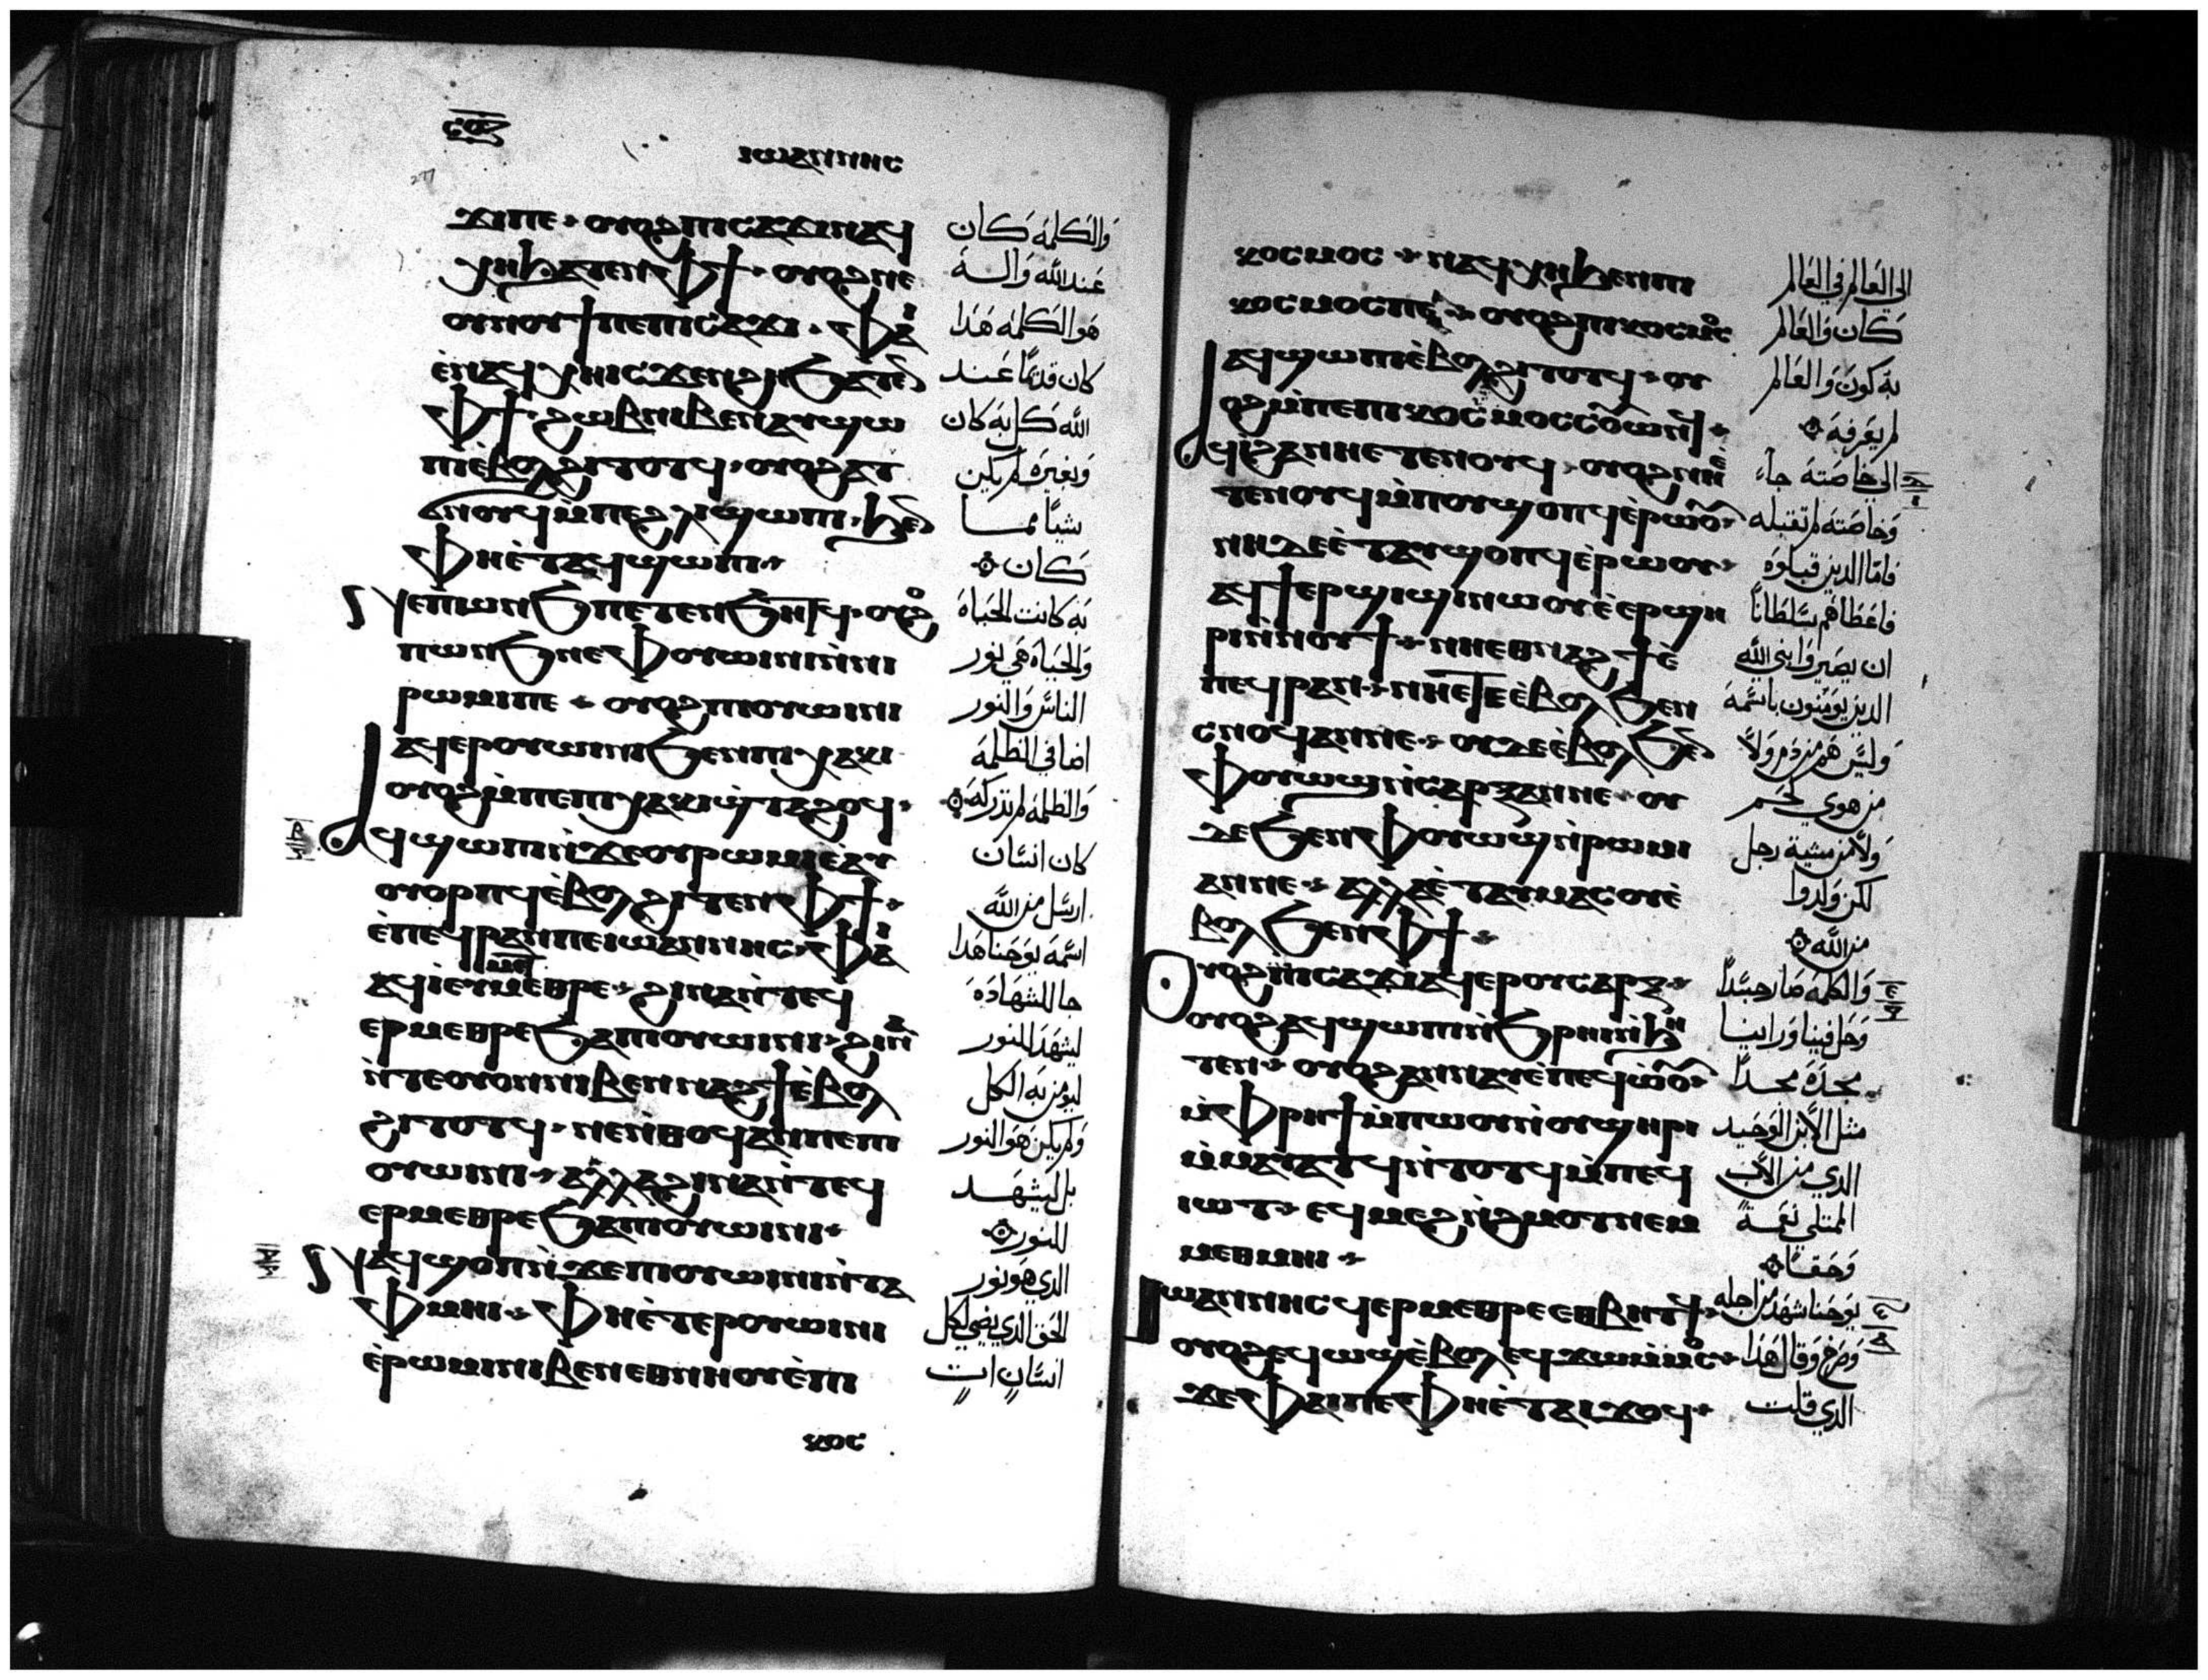 ⲥⲟⲍ
277
ⲓⲱⲁⲛⲛⲏⲥ
ϫⲓⲡⲉ ⲟⲩⲟϩⲡⲓⲥⲁϫⲓⲛⲁϥ
ⲭⲏϧⲁⲧⲉⲛⲫϯ ⲟⲩⲟϩⲛⲉ
ⲟⲩⲛⲟⲩϯⲡⲉⲡⲓⲥⲁϫⲓ ⲫⲁⲓ
ⲉ̀ⲛⲁϥⲭⲏⲓⲥϫⲉⲛϩⲏϧⲁⲧⲉⲛ
ⲫϯ ϩⲱⲃⲛⲓⲃⲉⲛⲁⲩϣⲱ
ⲡⲓⲉ̀ⲃⲟⲗϩⲓⲧⲟⲧϥ ⲟⲩⲟϩⲁⲧ
ϭⲛⲟⲩϥⲙⲡⲉϩⲗⲓϣⲱⲡⲓ ϧⲉⲛ
ⲫⲏⲉ̀ⲧⲁϥϣⲱⲡⲓ
ⲛⲉⲡⲱⲛϧⲡⲉⲧⲉⲛϧⲏⲧϥ ⲟⲩⲟϩ
ⲡⲱⲛϧⲛⲉⲫⲟⲩⲱⲓⲛⲓⲛ̀ⲛⲓ
ⲣⲱⲙⲓⲡⲉ ⲟⲩⲟϩⲡⲓⲟⲩⲱⲓⲛⲓ
ⲁϥⲉⲣⲟⲩⲱⲓⲛⲓϧⲉⲛⲡⲓⲭⲁⲕⲓ
ⲟⲩⲟϩⲙ̀ⲡⲉⲡⲓⲭⲁⲕⲓϣ̀ⲧⲁϩⲟϥ
ⲁϥϣⲱⲡⲓⲛ̀ϫⲉⲟⲩⲣⲱⲙⲓⲉ̀ⲁⲩ
ⲟⲩⲟⲣⲡϥⲉ̀ⲃⲟⲗϩⲓⲧⲉⲛⲫϯ
ⲉ̀ⲡⲉϥⲣⲁⲛⲡⲉⲓⲱⲁⲛⲛⲏⲥ ⲫⲁⲓ
ⲁϥⲓ̀ⲉⲩⲙⲉⲧⲙⲉⲑⲣⲉ ϩⲓⲛⲁⲛ̀ⲧⲉϥ
ⲉⲣⲙⲉⲑⲣⲉϧⲁⲡⲓⲟⲩⲱⲓⲛⲓ ϩⲓⲛⲁ
ⲛ̀ⲧⲉⲟⲩⲟⲛⲛⲓⲃⲉⲛⲛⲁϩϯⲉ̀ⲃⲟⲗ
ϩⲓⲧⲟⲧϥ ⲛⲉⲛ̀ⲑⲟϥⲁⲛⲡⲉⲡⲓ
ⲟⲩⲱⲓⲛⲓ ⲁⲗⲗⲁϩⲓⲛⲁⲛ̀ⲧⲉϥ
ⲉⲣⲙⲉⲑⲣⲉϧⲁⲡⲓⲟⲩⲱⲓⲛⲓ
ⲛⲁϥϣⲟⲡⲛ̀ϫⲉⲡⲓⲟⲩⲱⲓⲛⲓⲛ̀ⲧⲁ
ⲫⲙⲏⲓ ⲫⲏⲉ̀ⲧⲉⲣⲟⲩⲱⲓⲛⲓ
ⲉ̀ⲣⲱⲙⲓⲛⲓⲃⲉⲛⲉⲑⲛⲏⲟⲩⲉ̀ⲡⲓ
ⲕⲟⲥ
والكلمة كان
عند الله واله
هو الكلمة هدا
كان قديمًا عند
الله كل به كان
وبغيره لم يكن
شيًا مما
كان
به كانت الحياه
والحياه هي نور
الناس والنور
اضا في الظلمه
والظلمه لم تدركه
كان انسان
ارسل من الله
اسمه يوحنا هدا
جا للشهاده
ليشهد للنور
ليومن به الكل
ولم يكن هو النور
بل ليشهد
للنور
الدي هو نور
الحق الدي يضي لكل
انسان ات
ⲕⲟⲥⲙⲟⲥ ⲛⲁϥⲭⲏϧⲉⲛⲡⲓ
ⲕⲟⲥⲙⲟⲥⲡⲉ ⲟⲩⲟϩⲡⲓⲕⲟⲥⲙⲟⲥ
ⲁϥϣⲱⲡⲓⲉ̀ⲃⲟⲗϩⲓⲧⲟⲧϥ ⲟⲩ
ⲟϩⲙ̀ⲡⲉⲡⲓⲕⲟⲥⲙⲟⲥⲥⲟⲩⲱⲛϥ
ⲁϥⲓ̀ϩⲁⲛⲏⲉⲧⲉⲛⲟⲩϥ ⲟⲩⲟϩⲛⲏⲉ̀
ⲧⲉⲛⲟⲩϥⲙ̀ⲡⲟⲩϣⲟⲡϥⲉ̀ⲣⲱⲟⲩ
ⲛⲏⲇⲉⲉ̀ⲧⲁⲩϣⲟⲡϥⲉ̀ⲣⲱⲟⲩ
ⲁϥϯⲉⲣϣⲓϣⲓⲛⲱⲟⲩⲉ̀ⲉⲣϣⲏ
ⲣⲓⲛ̀ⲛⲟⲩϯ ⲛⲏⲉⲑⲛⲁϩϯⲉ̀
ⲡⲉϥⲣⲁⲛ ⲛⲏⲉⲧⲉⲉ̀ⲃⲟⲗϧⲉⲛ
ⲥⲛⲟϥⲁⲛⲛⲉ ⲟⲩⲇⲉⲉ̀ⲃⲟⲗϧⲉⲛ
ⲫⲟⲩⲱϣⲛ̀ⲥⲁⲣⲝⲁⲛⲛⲉ ⲟⲩ
ⲇⲉϧⲉⲛⲫⲟⲩⲱϣⲛ̀ⲣⲱⲙⲓ
ⲁⲛⲛⲉ ⲁⲗⲗⲁⲉ̀ⲧⲁⲩⲙⲁⲥⲟⲩⲉ̀
ⲃⲟⲗϧⲉⲛⲫϯ
ⲟⲩⲟϩⲡⲓⲥⲁϫⲓⲁϥⲉⲣⲟⲩⲥⲁⲣⲝ
ⲟⲩⲟϩⲁϥϣⲱⲡⲓⲛ̀ϧⲣⲏⲓⲛ̀ϧⲏ
ⲧⲉⲛ ⲟⲩⲟϩⲁⲛⲛⲁⲩⲉ̀ⲡⲉϥⲱ̀ⲟⲩ
ⲙ̀ⲫⲣⲏϯⲙ̀ⲡⲱⲟⲩⲛ̀ⲟⲩϣⲏⲣⲓ
ⲙ̀ⲙⲁⲩⲁⲧϥⲛ̀ⲧⲟⲧϥⲙ̀ⲡⲉϥ
ⲓⲱⲧ ⲉϥⲙⲉϩⲛ̀ϩⲙⲟⲧⲛⲉⲙ
ⲙⲉⲑⲙⲏⲓ
ⲓⲱⲁⲛⲛⲏⲥϥⲉⲣⲙⲉⲑⲣⲉⲉⲑⲃⲏⲧϥ
ⲟⲩⲟϩⲉϥⲱϣⲉ̀ⲃⲟⲗⲉϥϫⲱⲙ̀ⲙⲟⲥ
ϫⲉⲫⲁⲓⲡⲉⲫⲏⲉ̀ⲧⲁⲓϫⲟϥ
الي العالم في العالم
كان والعالم
به كون والعالم
لم يعرفه
الي خاصته جاء
وخاصته لم تقبله
فاما الدين قبلوه
فاعطاهم سلطانًا
ان يصيروا بني الله
الدين يومنون باسمه
وليس هم من دم ولا
من هوي لحم
ولا من مشية رجل
لكن ولدوا
من الله
والكلمه صار جسدًا
وحل فينا وراينا
مجده مجدًا
مثل الابن الوحيد
الدي من الاب
الممتلي نعمةً
وحقًا
يوحنا شهد من اجله
وصرخ وقال هدا
الدي قلت